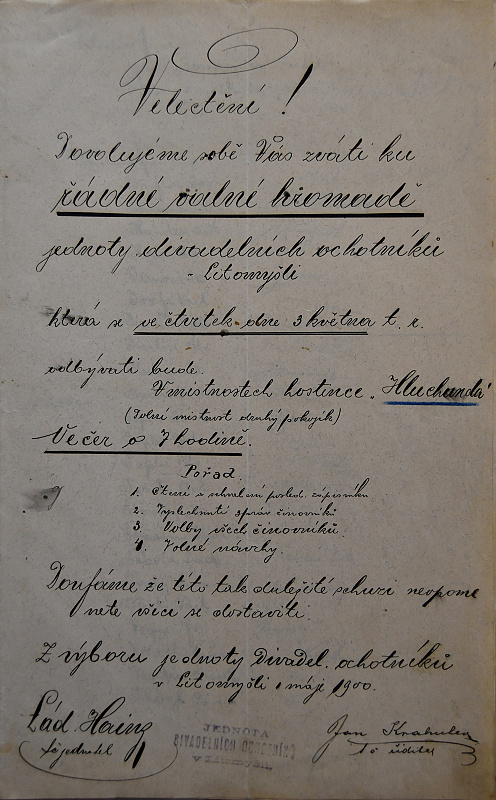 Velectění!
Dovolujeme sobě Vás zváti ku
řádné valné hromadě
jednoty divadelních ochotníků
- Litomyšli
která se ve čtvrtek dne 3 května t. r.
odbývati bude.
V místnostech hostince „Hluchanda"
(Dolní místnost druhý pokojík)
Večer o 7 hodině.
Pořad.
1. Čtení a schválení posled. zápisníku
2. Vyslechnutí zpráv činovníků
3 Volby všech činovníků.
4. Volné návrhy.
Doufáme že této tak důležité schuzi neopome
nete všici se dostaviti.
Z výboru jednoty Divadel. ochotníků
v Litomyšli 1 máje 1900.
Lád. Hainz
Jan Krahulec
t. č. jednatel
t č ředitel
JEDNOTA
DIVADELNÍCH OCHOTNÍKŮ
v Litomyšli.